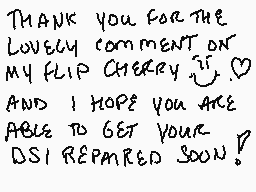 THANK YOU FOR THE
LOVELY COMMENT ON
MY FLIP CHERRY
AND I HOPE YOU ARE
ABLE TO GET YOUR
DSI REPAIRED SOON!